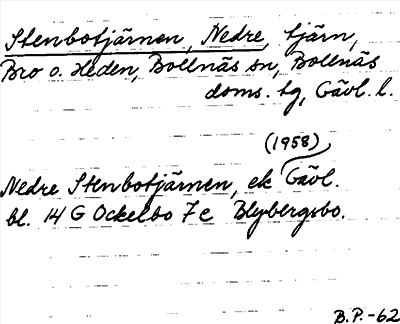 Stenbotjärnen, Nedre, tjärn,
Bro o. Heden, Bollnäs sn, Bollnäs
doms. tg, Gävl. l.
(1958)
Nedre Stenbotjärnen, ek Gävl.
bl. 14 G Ockelbo 7 c Blybergsbo.
B.P.-62